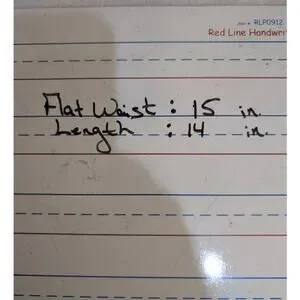 Item # RLP0912
Red Line Handwri
Flat Waist : 15 in.
Length : 14 in.